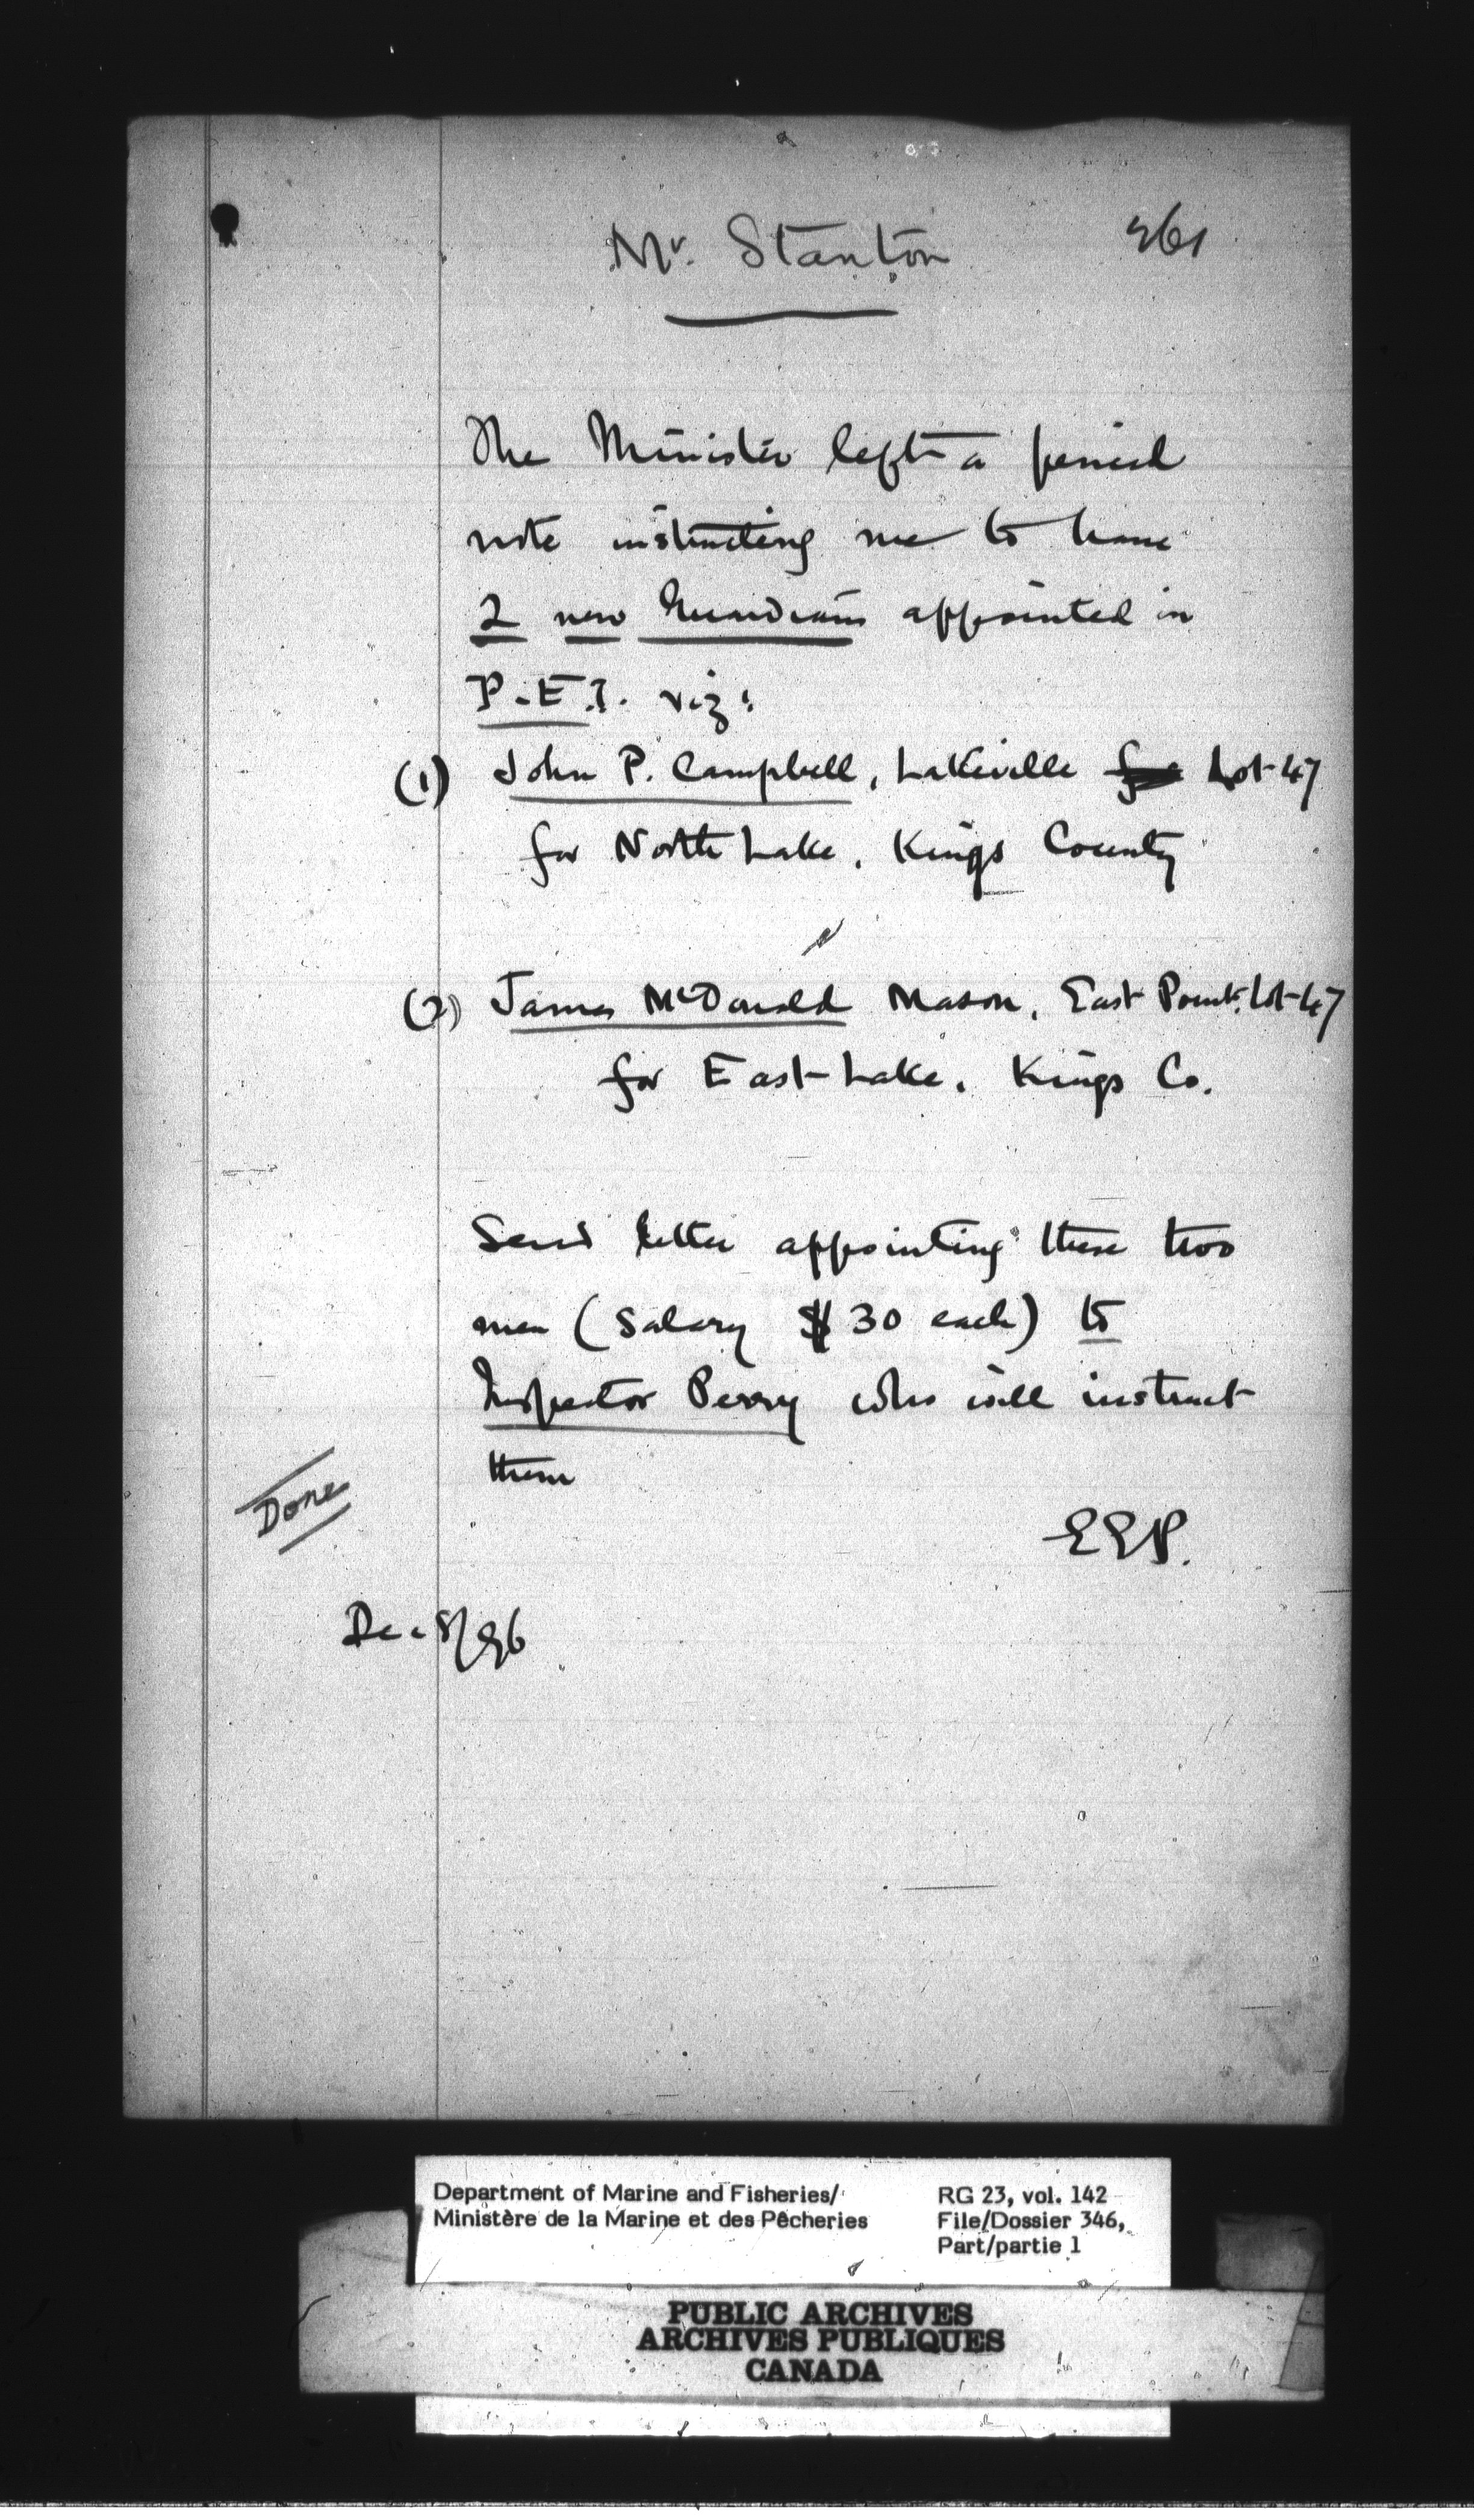 Mr. Stanton
261
The Minister left a pencil
note instructing me to have
2 new Guardians appointed in
P.E.I. viz:
(1) John P. Campbell, Lakeville for Lot 47
for North Lake, Kings County
(2) James McDonald Mason, East Point, Lot 47
for East Lake, Kings Co.
Send letter appointing these two
men (Salary $30 each) to
Inspector Perry who will instruct
them
Done
EEP.
Dec 8/96
Department of Marine and Fisheries/
Ministère de la Marine et des Pêcheries
RG 23, vol. 142
File/Dossier 346,
Part/partie 1
PUBLIC ARCHIVES
ARCHIVES PUBLIQUES
CANADA